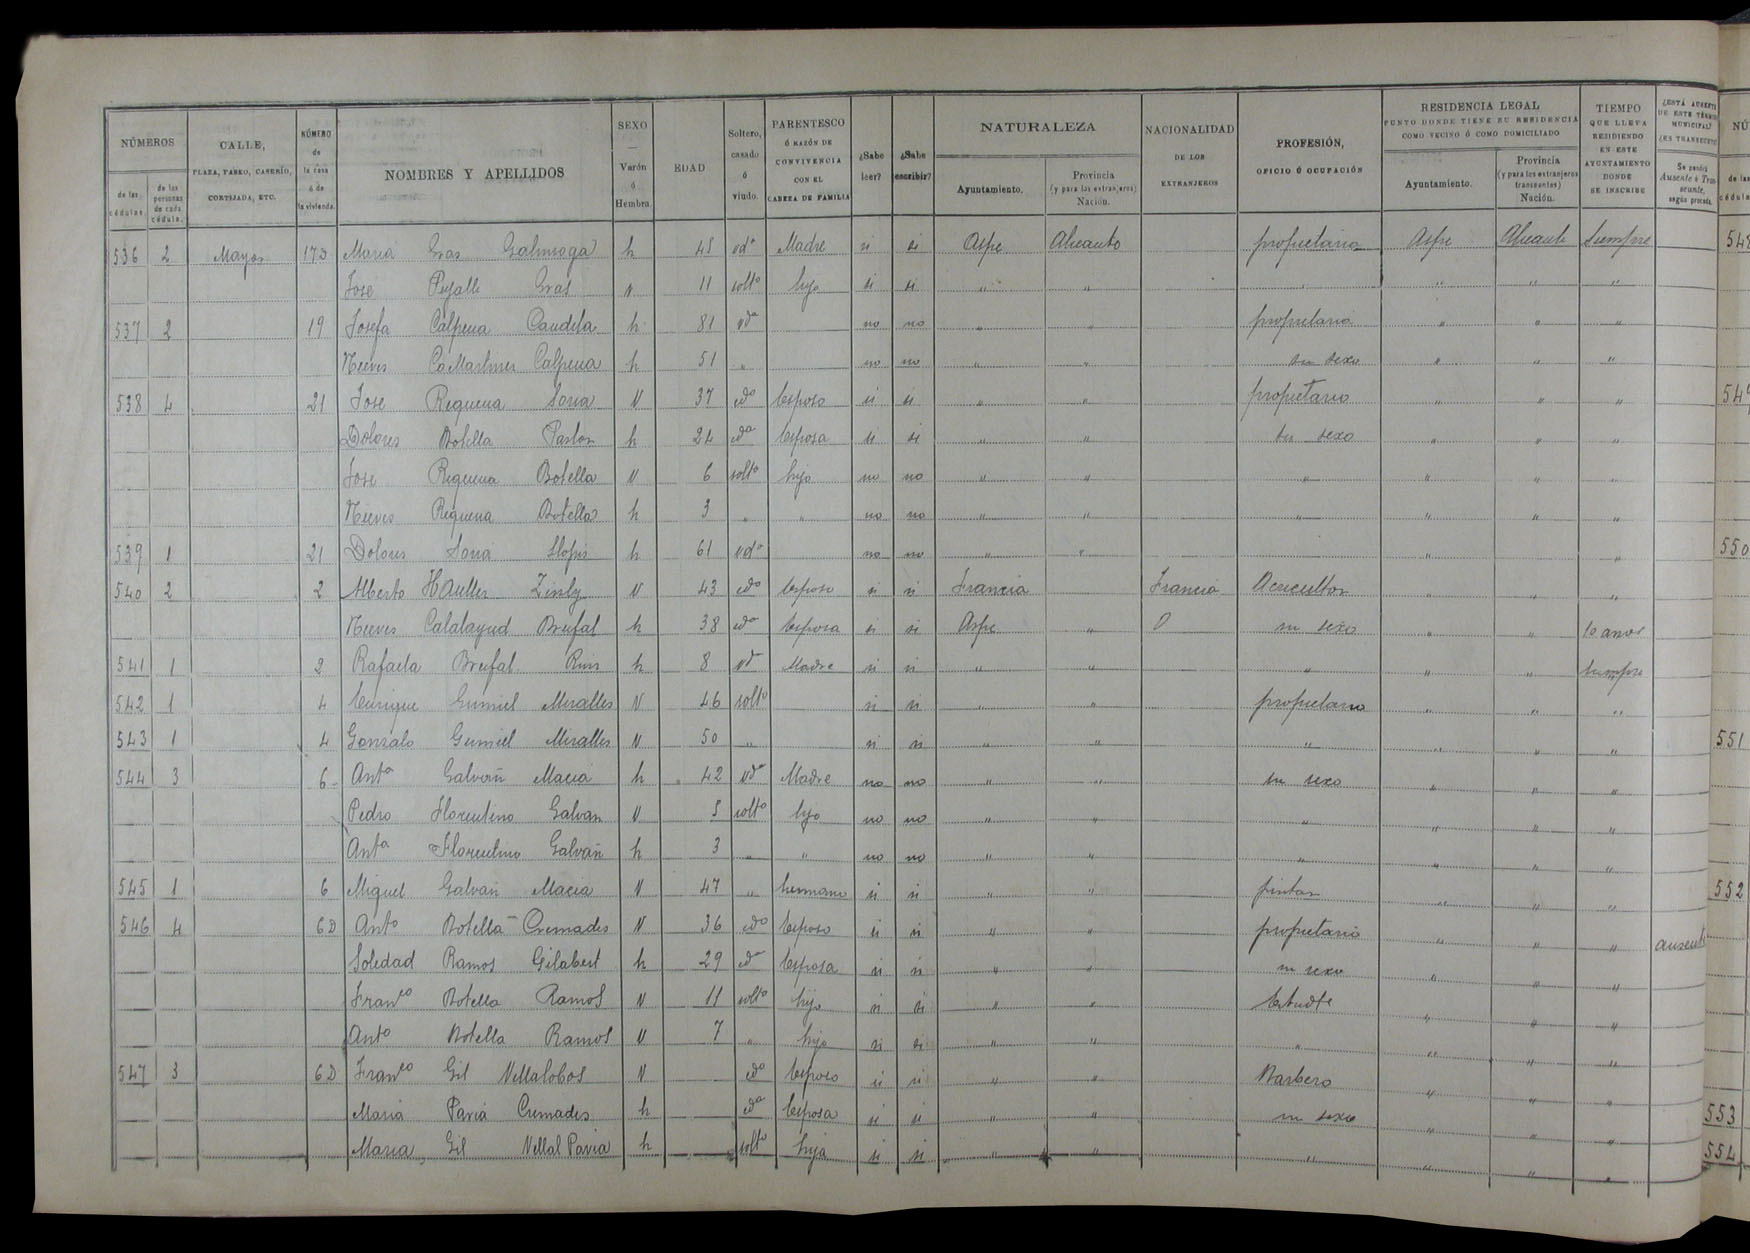 NÚMEROS | CALLE, PLAZA, PASEO, CASERÍO, CORTIJADA, ETC. | NÚMERO de la casa ó de la vivienda. | NOMBRES Y APELLIDOS | SEXO — Varón ó Hembra | EDAD | Soltero, casado ó viudo. | PARENTESCO Ó RAZÓN DE CONVIVENCIA CON EL CABEZA DE FAMILIA | ¿Sabe leer? | ¿Sabe escribir? | NATURALEZA | NACIONALIDAD DE LOS EXTRANJEROS | PROFESIÓN, OFICIO Ó OCUPACIÓN | RESIDENCIA LEGAL PUNTO DONDE TIENE SU RESIDENCIA COMO VECINO Ó COMO DOMICILIADO | TIEMPO QUE LLEVA RESIDIENDO EN ESTE AYUNTAMIENTO DONDE SE INSCRIBE | ¿ESTÁ AUSENTE DE ESTE TÉRMINO MUNICIPAL? ¿ES TRANSEUNTE?
de las cédulas. | de las personas de cada cédula. | Ayuntamiento. | Provincia (y para los extranjeros) Nación. | Ayuntamiento. | Provincia (y para los extranjeros transeuntes) Nación. | Se pondrá Ausente ó Transeunte, según proceda.
536 2 Mayor 173 Maria Gras h 45 vda Madre si si Aspe Alicante propietaria Aspe Alicante Siempre
Jose Pujalte Gras V 11 solto hijo si si " " " " " "
537 2 19 Josefa Calpena Candela h 81 vda no no " " propietaria " " "
Nieves Calpena h 51 " no no " " su sexo " " "
538 4 21 Jose Requena Soria V 37 cdo Esposo si si " " propietario " " "
Dolores Botella Pastor h 24 cda Esposa si si " " su sexo " " "
Jose Requena Botella V 6 solto hijo no no " " " " " "
Nieves Requena Botella h 3 " " no no " " " " " "
539 1 21 Dolores Soria Llopis h 61 vda no no " " " "
540 2 2 Alberto V 43 cdo Esposo si si Francia Francia " "
Nieves Calatayud Brufal h 38 cda Esposa si si Aspe " su sexo " " 10 anos
541 1 2 Rafaela Brufal h 8 vda Madre si si " " " " " Siempre
542 1 4 Enrique Gumiel Miralles V 46 solto si si " " propietario " " "
543 1 4 Gonzalo Gumiel Miralles V 50 " si si " " " " " "
544 3 6 Anta Galvañ Macia h 42 vda Madre no no " " su sexo " " "
Pedro Florentino Galvan V 5 solto hijo no no " " " " " "
Anta Florentino Galvañ h 3 " " no no " " " " " "
545 1 6 Miguel Galvañ Macia V 47 " hermano si si " " pintor " " "
546 4 6D Anto Botella Cremades V 36 cdo Esposo si si " " propietario " " " ausente
Soledad Ramos Gilabert h 29 cda Esposa si si " " su sexo " " "
Franco Botella Ramos V 11 solto hijo si si " " Estudte " " "
Anto Botella Ramos V 7 " hijo si si " " " " " "
547 3 6D Franco Gil Villalobos V cdo Esposo si si " " Barbero " " "
Maria Pavia Cremades h cda Esposa si si " " su sexo " " "
Maria Gil Villal Pavia h solto hija si si " " " " " "
NÚ
de las cédulas
549
550
551
552
553
554